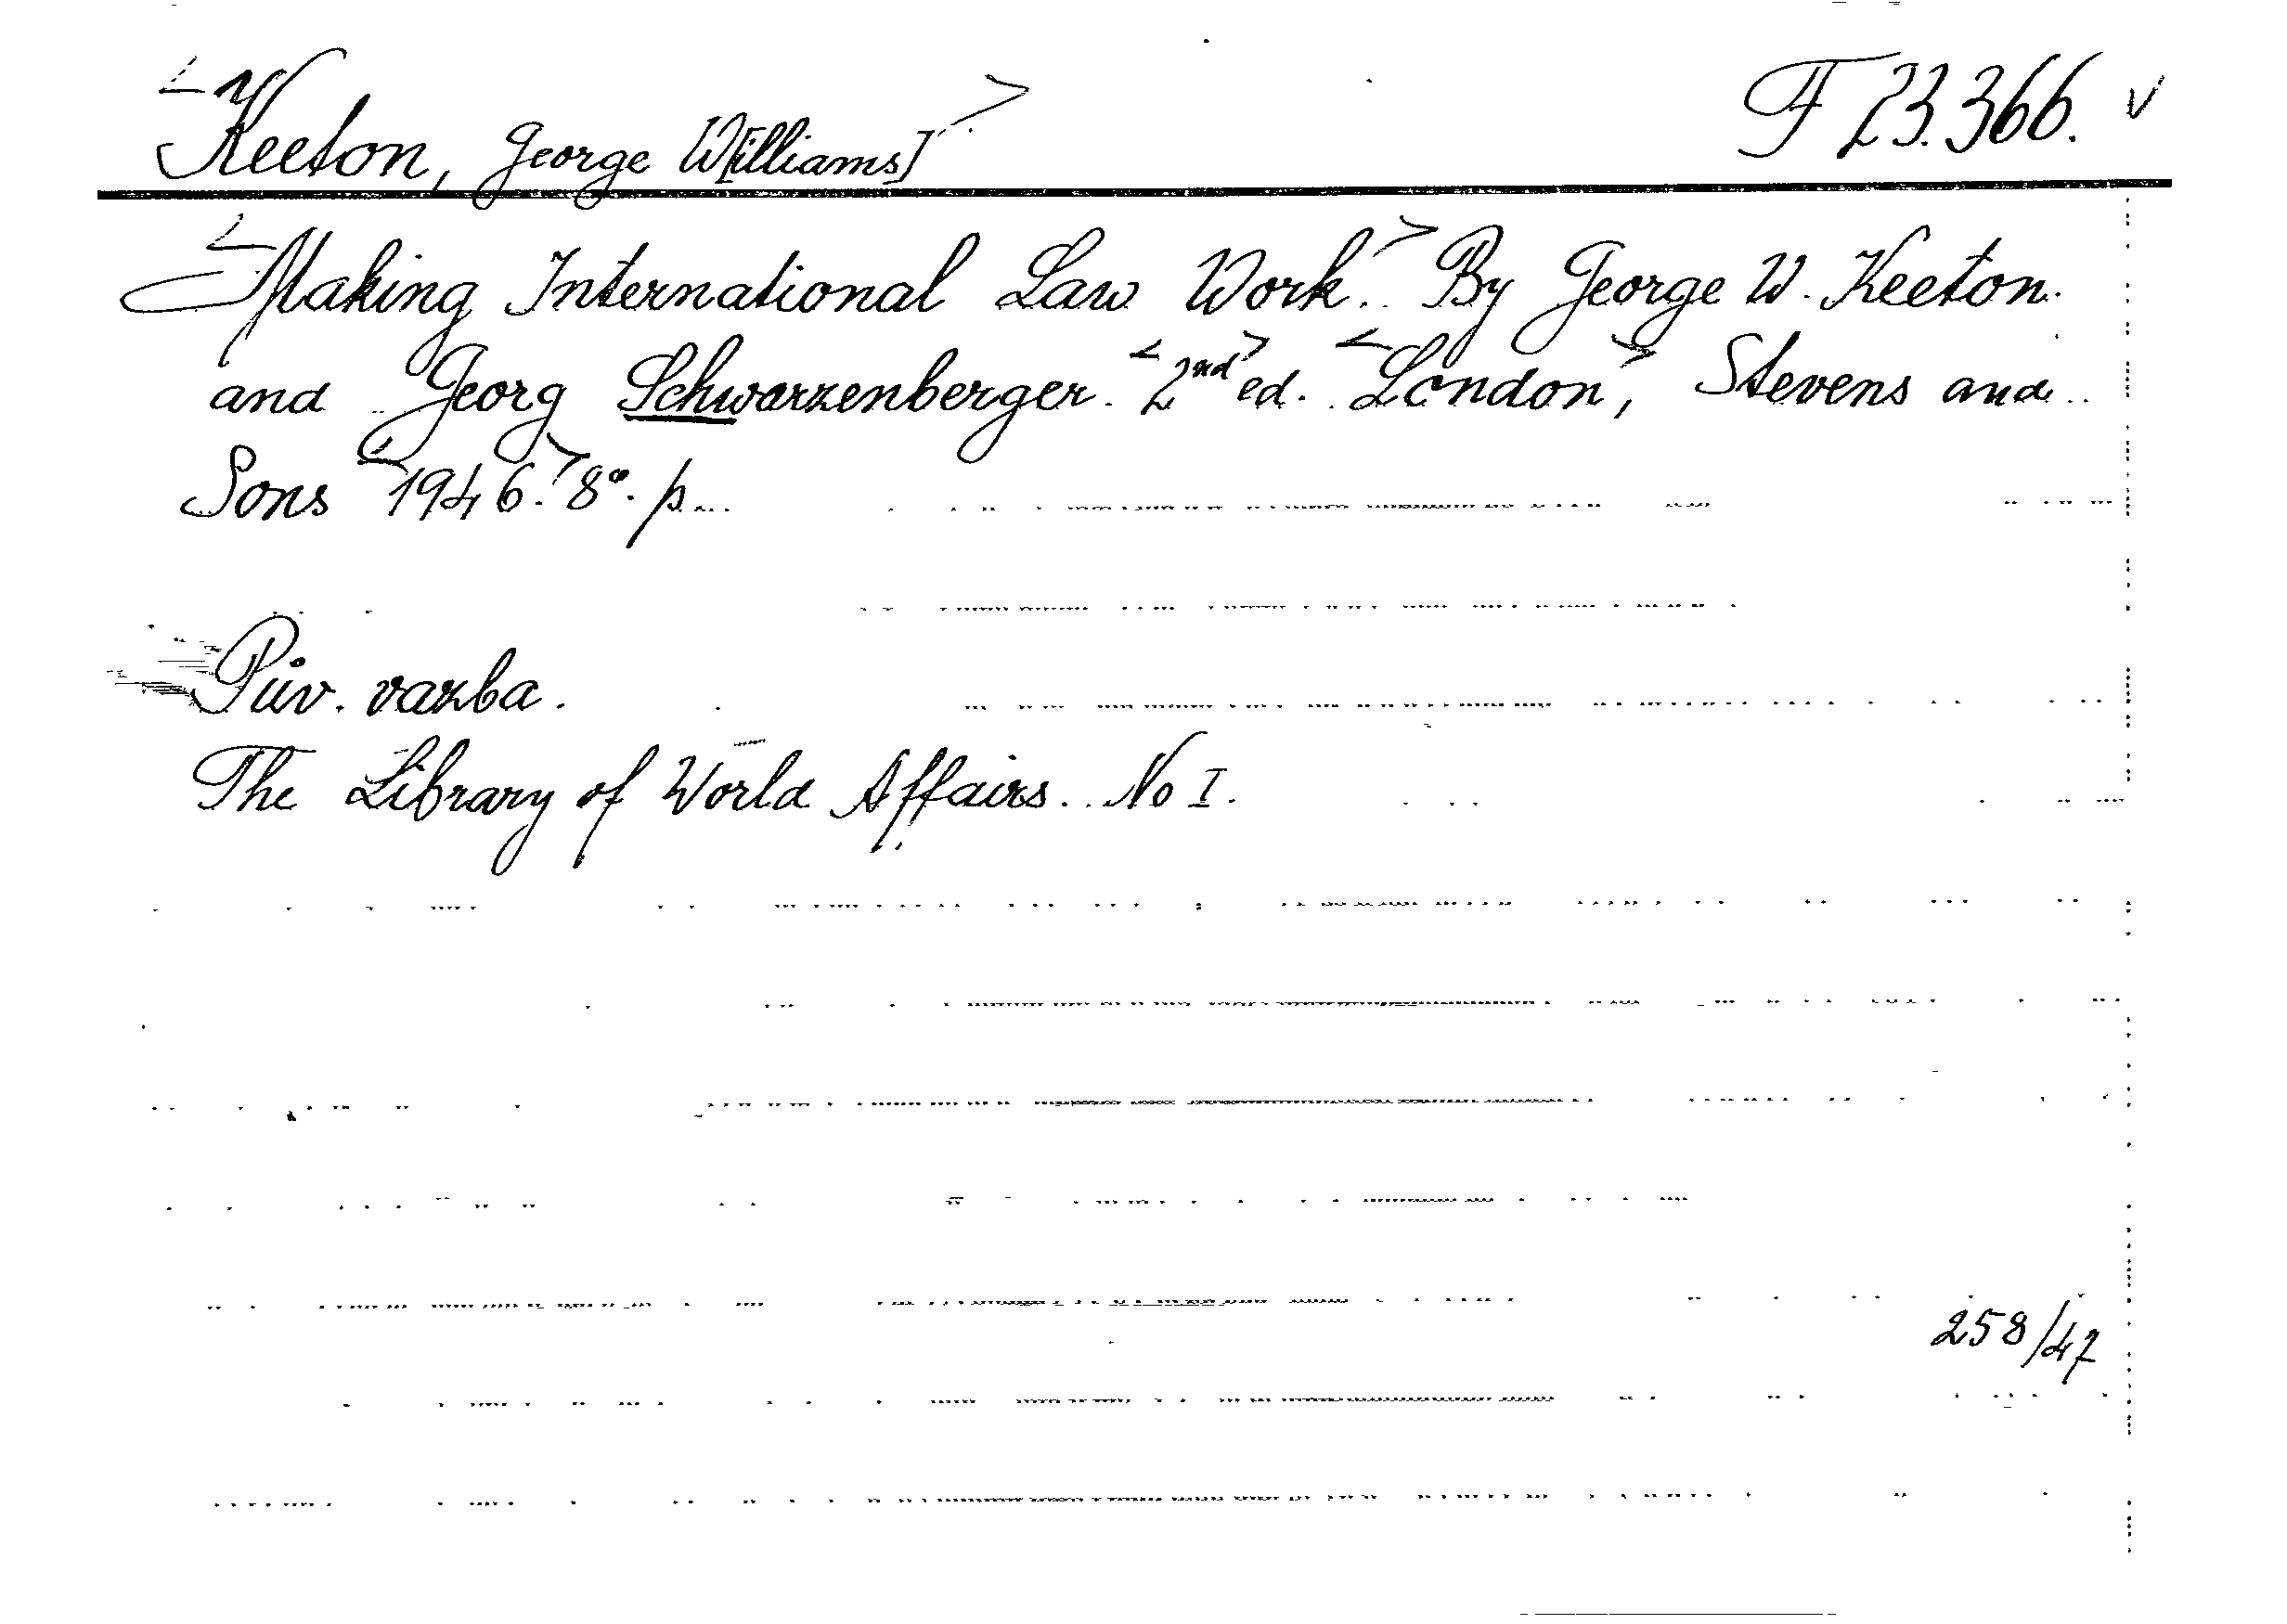 <Keeton, George W[illiams]> F 23.366. v
<Making International Law Work.> By George W. Keeton
and Georg Schwarzenberger. <2nd> ed. <London,> Stevens and
Sons <1946.> 8°. p.
Pův. vazba.
The Library of World Affairs. No I.
258/47